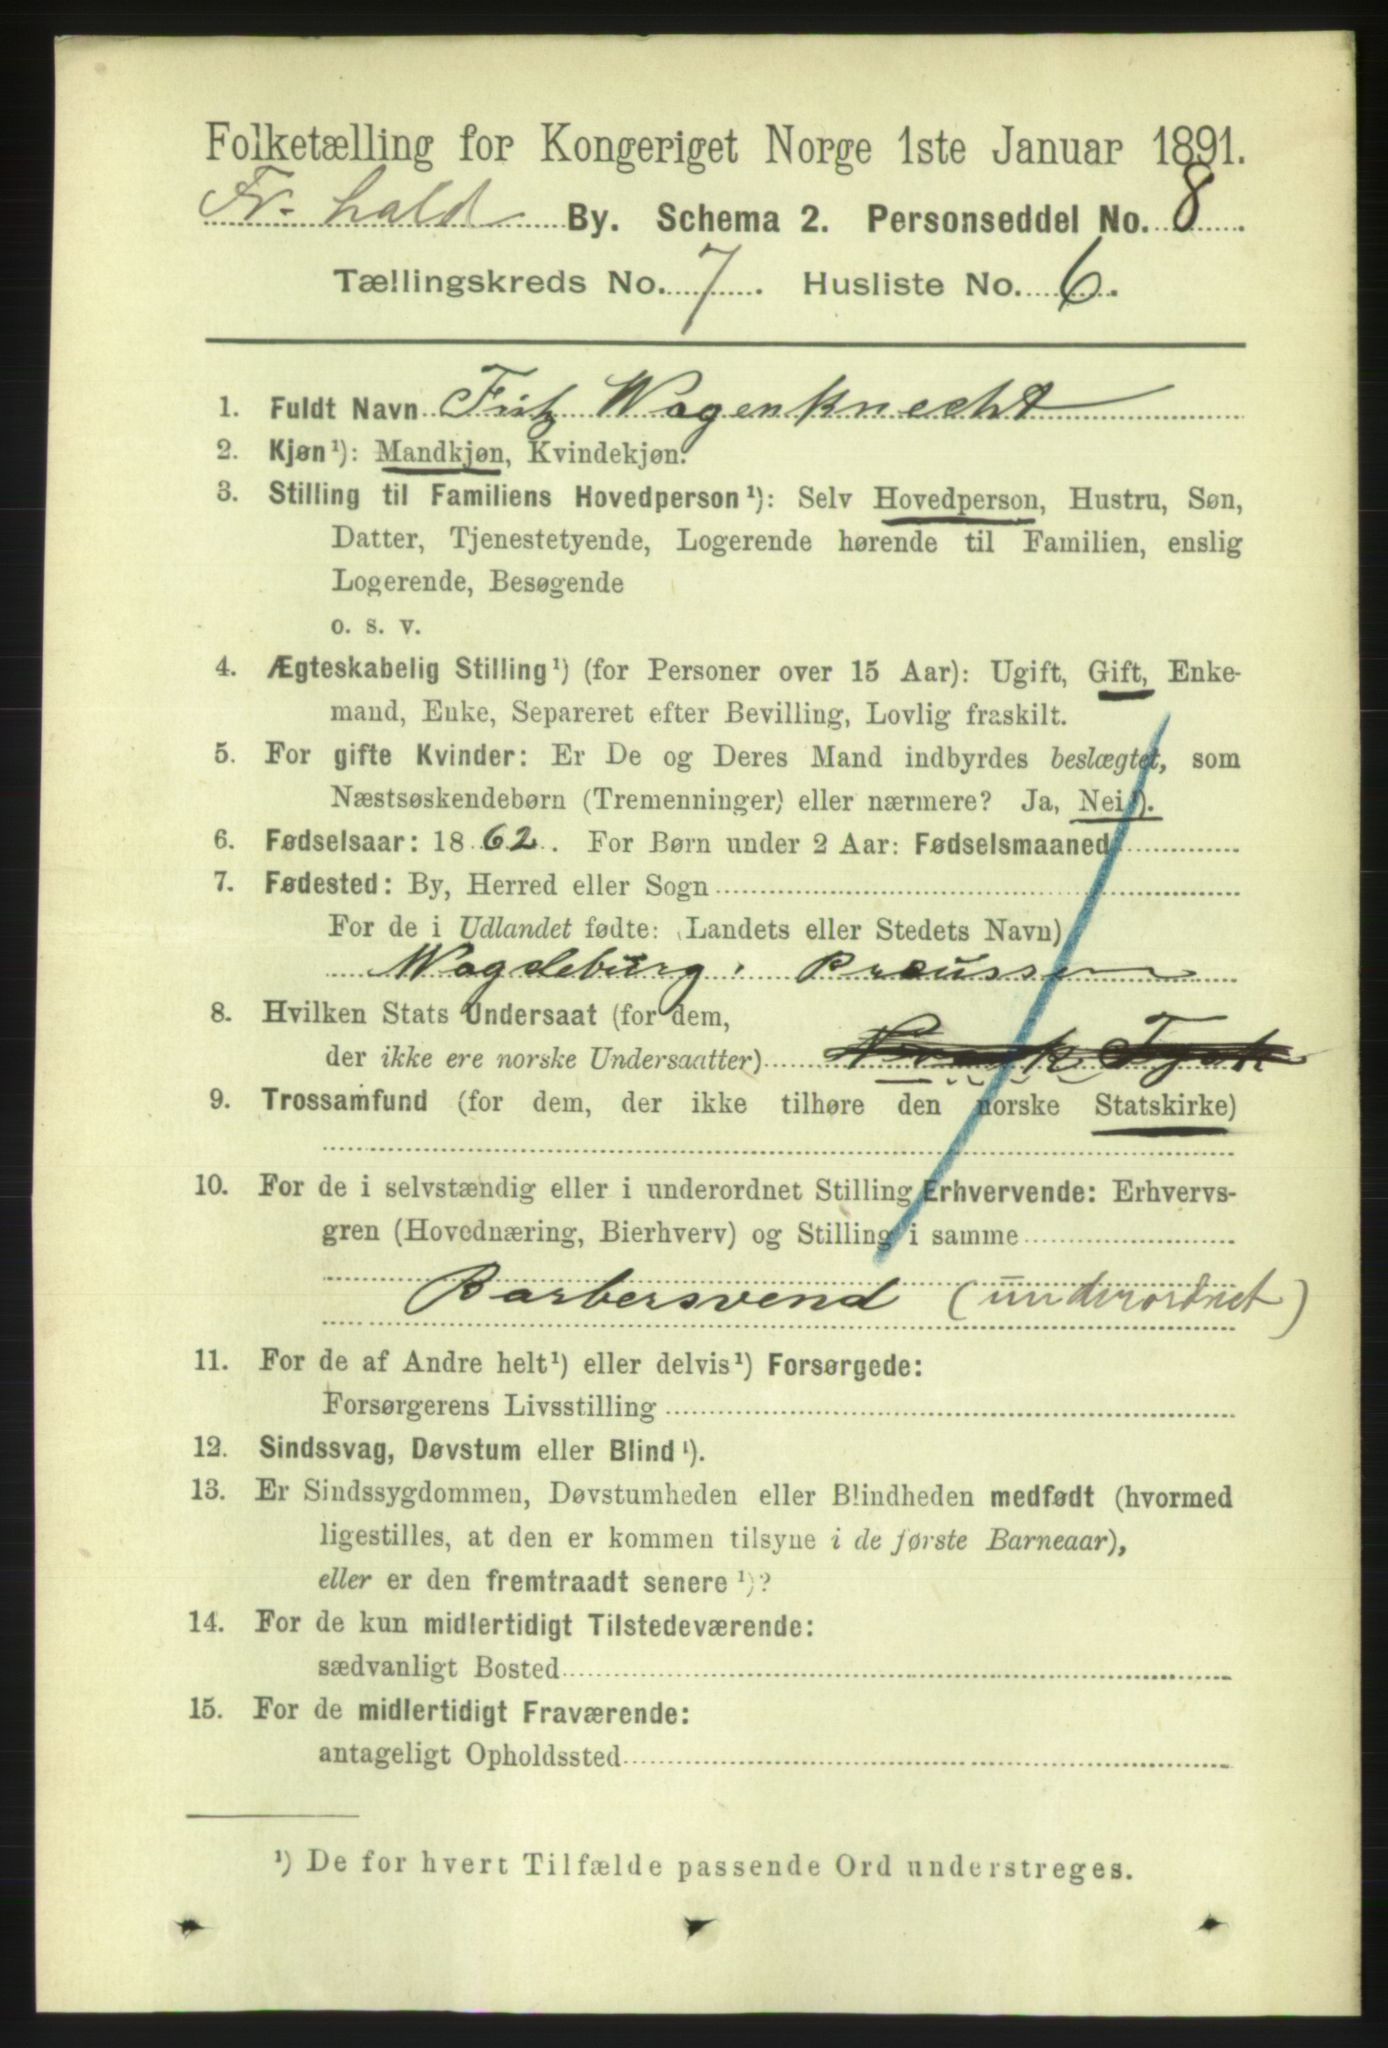 Folketælling for Kongeriget Norge 1ste Januar 1891.
Fr. hald By. Schema 2. Personseddel No. 8
Tællingskreds No. 7. Husliste No. 6.
1. Fuldt Navn Fritz Wagenknecht
2. Kjøn¹): Mandkjøn, Kvindekjøn.
3. Stilling til Familiens Hovedperson¹): Selv Hovedperson, Hustru, Søn,
Datter, Tjenestetyende, Logerende hørende til Familien, enslig
Logerende, Besøgende
o. s. v.
4. Ægteskabelig Stilling¹) (for Personer over 15 Aar): Ugift, Gift, Enke-
mand, Enke, Separeret efter Bevilling, Lovlig fraskilt.
5. For gifte Kvinder: Er De og Deres Mand indbyrdes beslægtet, som
Næstsøskendebørn (Tremenninger) eller nærmere? Ja, Nei¹).
6. Fødselsaar: 1862. For Børn under 2 Aar: Fødselsmaaned
7. Fødested: By, Herred eller Sogn
For de i Udlandet fødte: (Landets eller Stedets Navn)
Magdeburg, Preussen
8. Hvilken Stats Undersaat (for dem,
der ikke ere norske Undersaatter) Norsk Tysk
9. Trossamfund (for dem, der ikke tilhøre den norske Statskirke)
10. For de i selvstændig eller i underordnet Stilling Erhvervende: Erhvervs-
gren (Hovednæring, Bierhverv) og Stilling i samme
Barbersvend (underordnet)
11. For de af Andre helt¹) eller delvis¹) Forsørgede:
Forsørgerens Livsstilling
12. Sindssvag, Døvstum eller Blind¹).
13. Er Sindssygdommen, Døvstumheden eller Blindheden medfødt (hvormed
ligestilles, at den er kommen tilsyne i de første Barneaar),
eller er den fremtraadt senere¹)?
14. For de kun midlertidigt Tilstedeværende:
sædvanligt Bosted
15. For de midlertidigt Fraværende:
antageligt Opholdssted
¹) De for hvert Tilfælde passende Ord understreges.